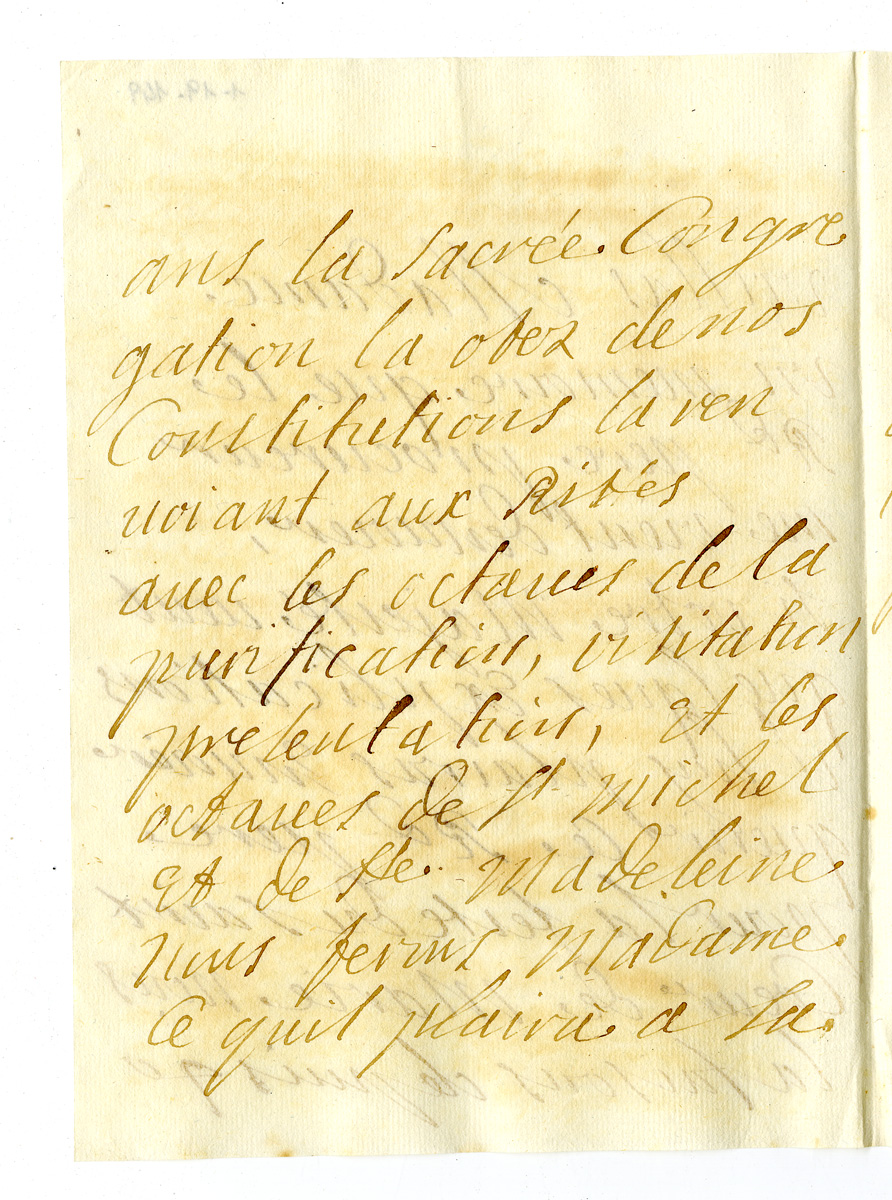 ans la sacrée Congre
gation la otez de nos
Constitutions la ren
uoiant aux Rités
auec les octaues de la
purification, visitation
presentation, et les
octaues de St michel
et de Ste madeleine
nous ferons Madame
Ce quil plaira a Sa